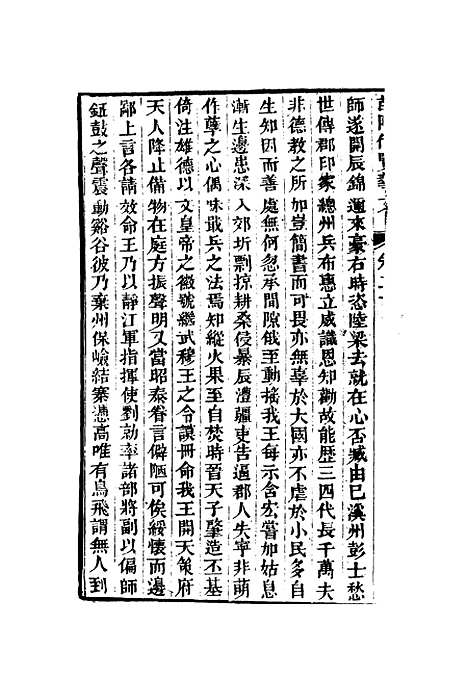 師遂開辰錦邇來豪右時恣陸梁去就在心否臧由己溪州彭士愁
世傳郡印家總州兵布惠立威識恩知勸故能歷三四代長千萬夫
非德教之所加豈簡書而可畏亦無辜於大國亦不虐於小民多自
生知因而善處無何忽承間隙俄至動搖我王每示含宏嘗加姑息
漸生邊患深入郊圻剽掠耕桑侵暴辰澧疆吏告逼郡人失寧非萌
作孽之心偶昧戢兵之法焉知縱火果至自焚時晉天子肇造丕基
倚注雄德以文皇帝之徽號繼武穆王之令謨冊命我王開天策府
天人降止備物在庭方振聲明又當昭泰眷言僻陋可俟綏懷而邊
鄙上言各請效命王乃以靜江軍指揮使劉勍率諸部將副以偏師
鉦鼓之聲震動谿谷彼乃棄州保嶮結寨憑高唯有鳥飛謂無人到